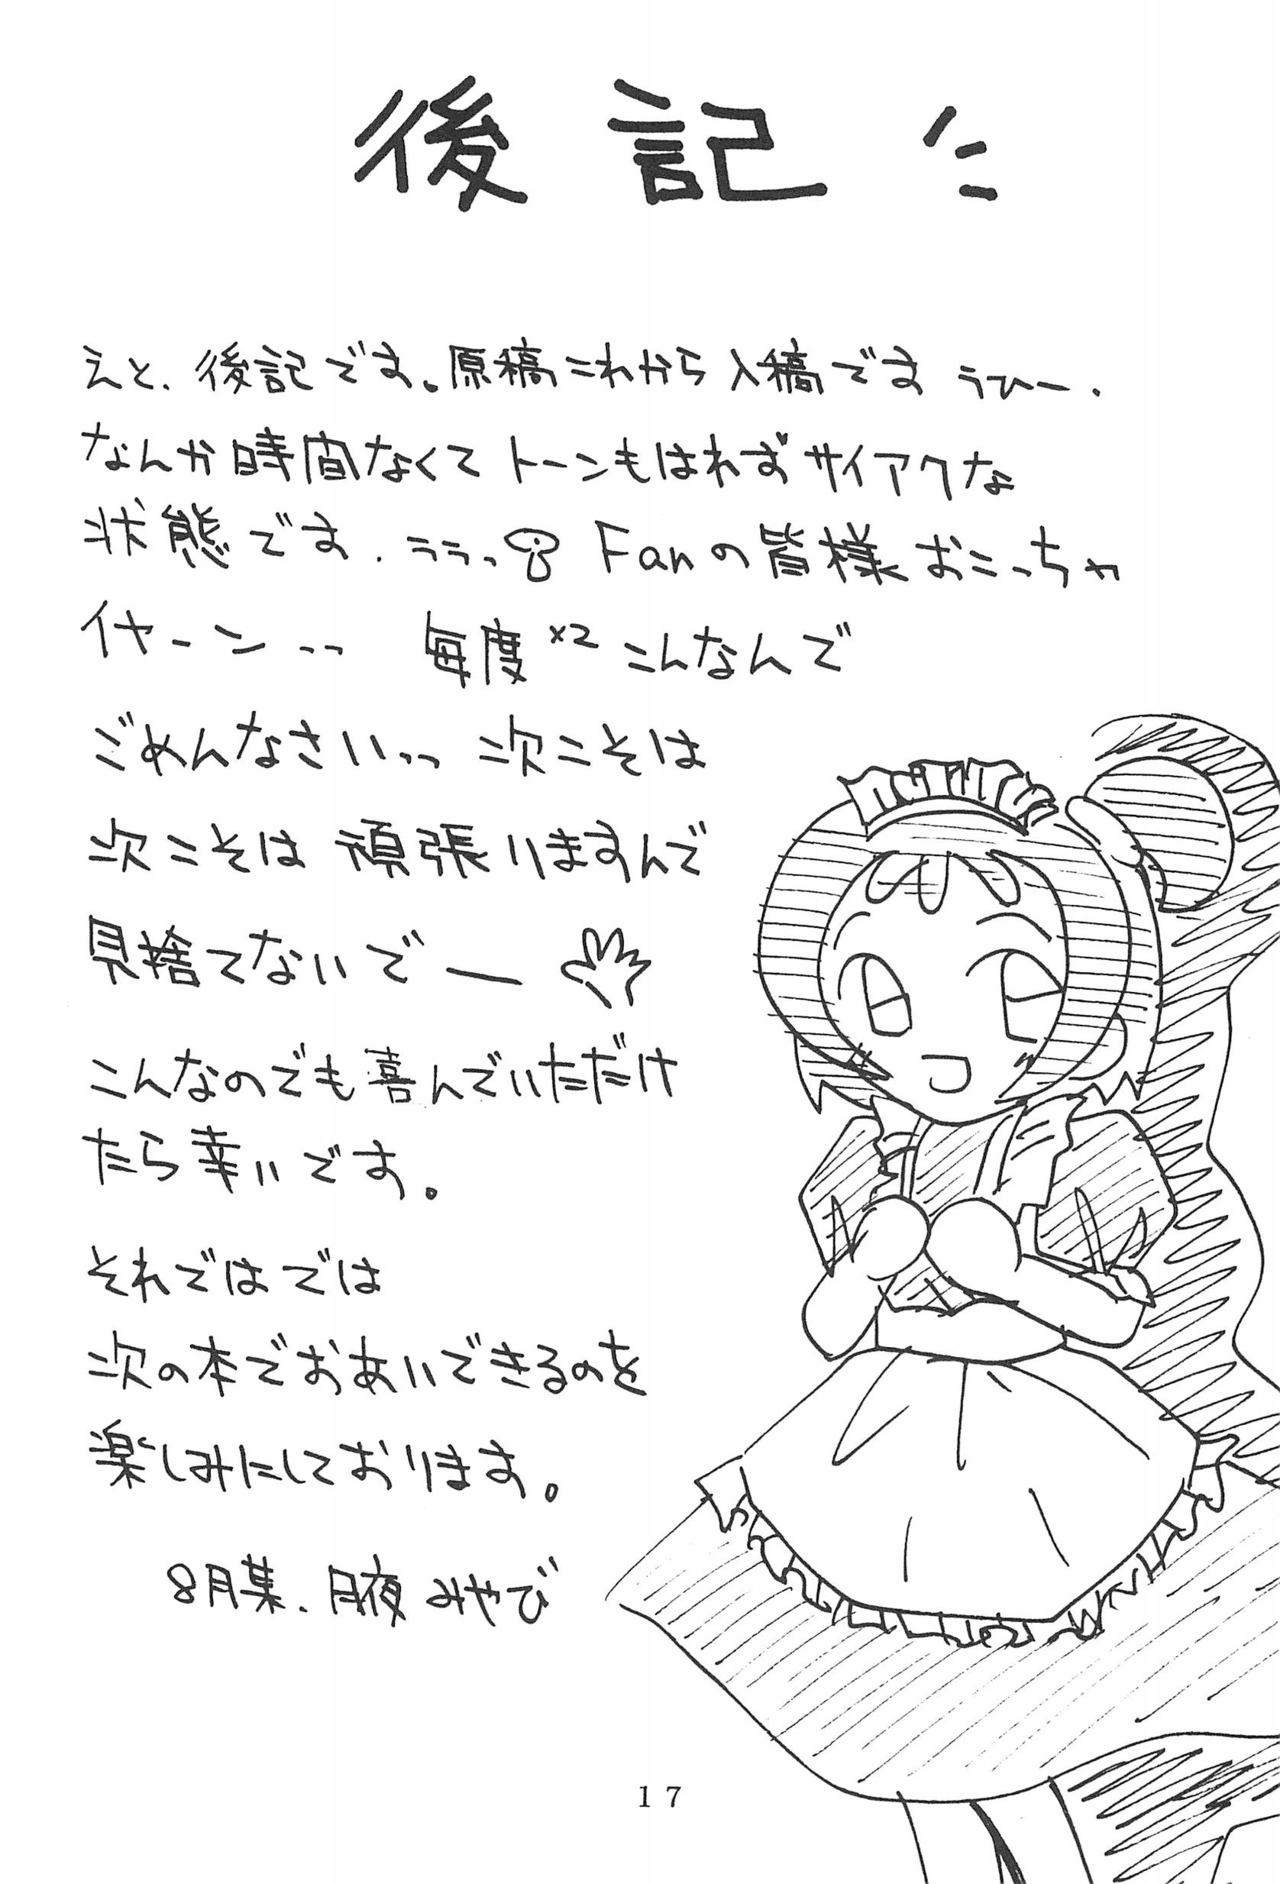 後記
えと、後記です。原稿これから入稿です うひー.
なんか時間なくてトーンもはれずサイアクな
状態です. ううっ Fanの皆様おこっちゃ
イヤーン.. 毎度×2こんなんで
ごめんなさいっっ 次こそは
次こそは頑張りますんで
見捨てないでー
こんなのでも喜んでいただけ
たら幸いです。
それではでは
次の本でおあいできるのを
楽しみにしております。
8月某. 月夜みやび
17